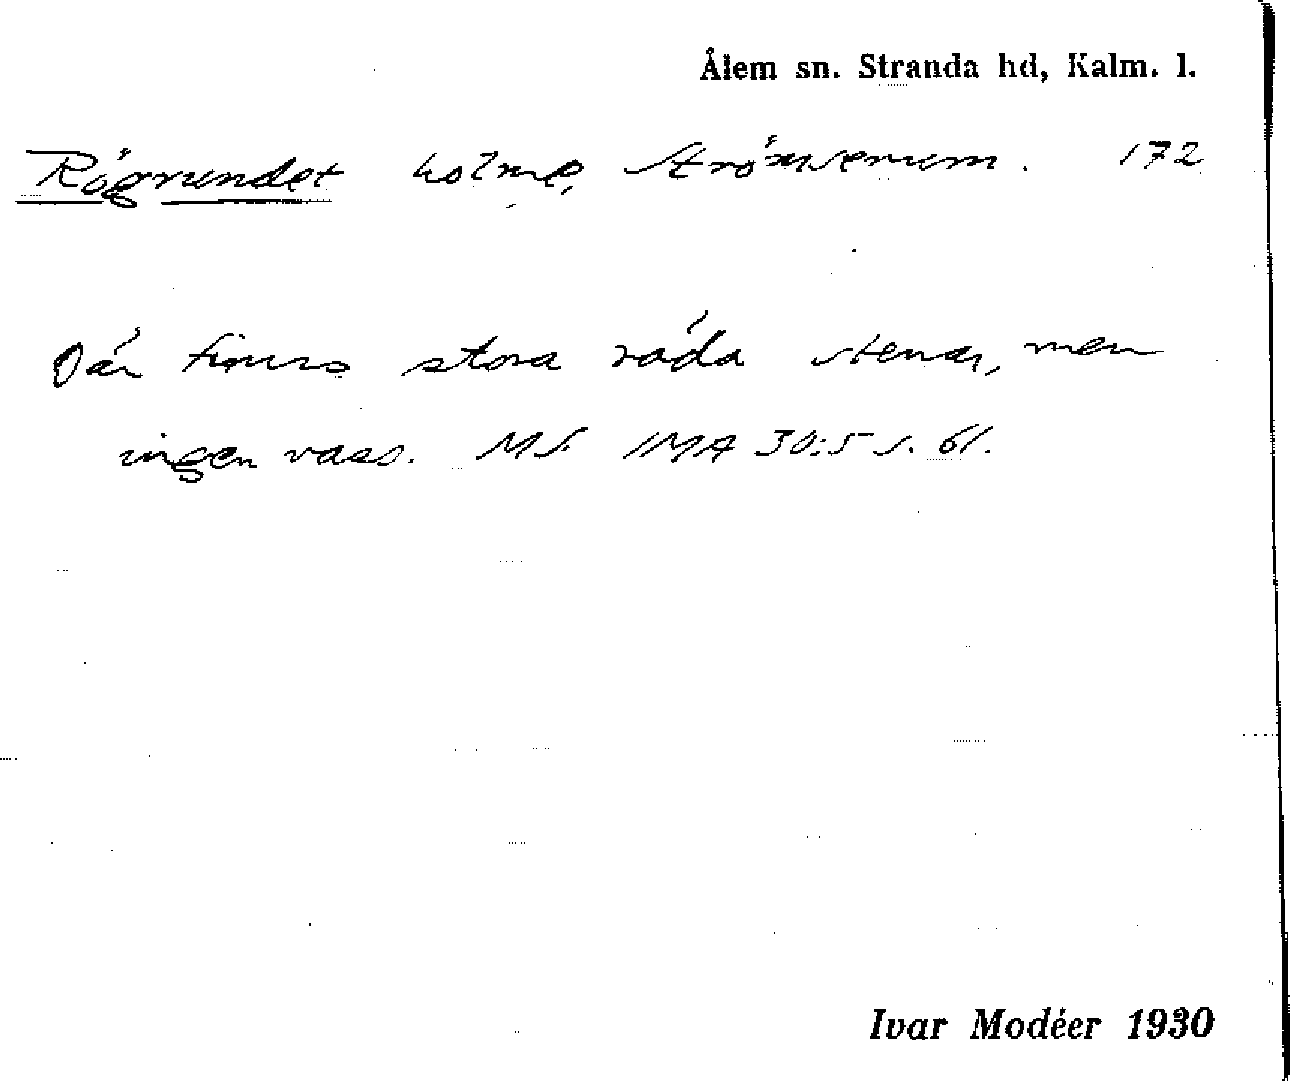 Ålem sn. Stranda hd, Kalm. l.
Rögrundet holme, Strömserum. 172
Där finns stora röda stenar, men
ingen vass. MS IMA 30:5 s. 61.
Ivar Modéer 1930